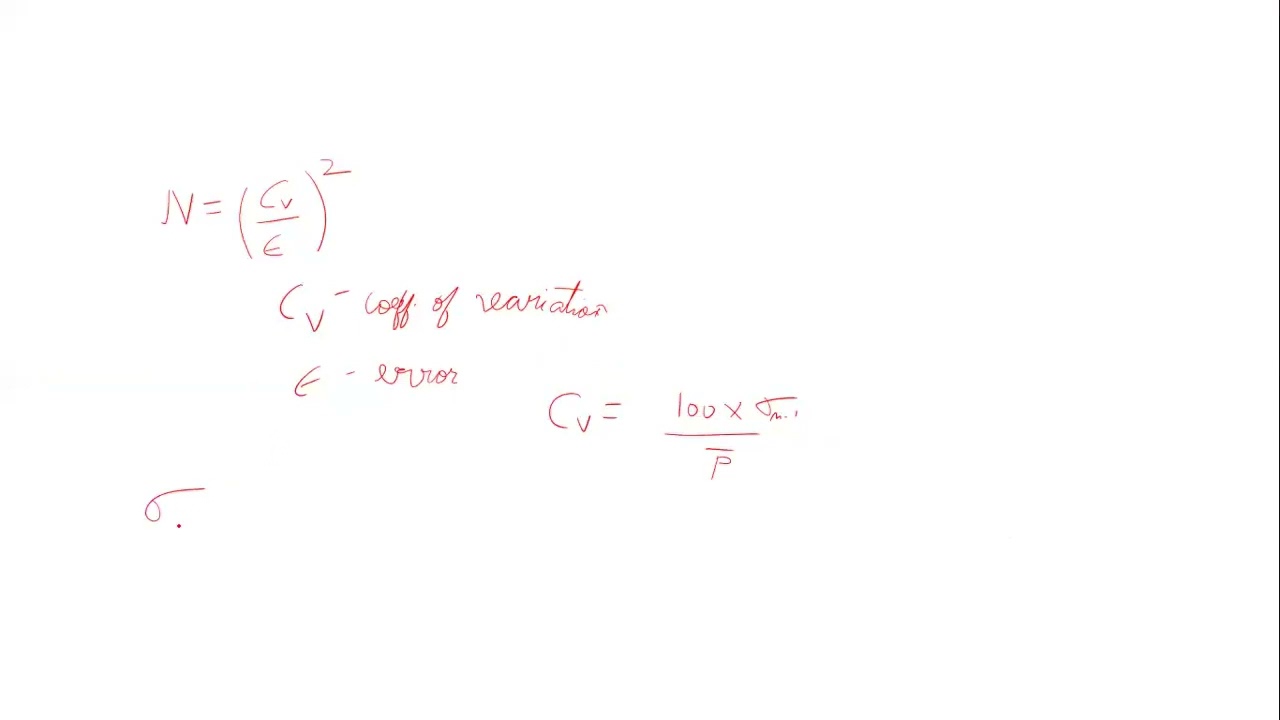 N = (Cv/ε)²
Cv - coeff. of variation
ε - error
Cv = 100 × σ / P̄
σ